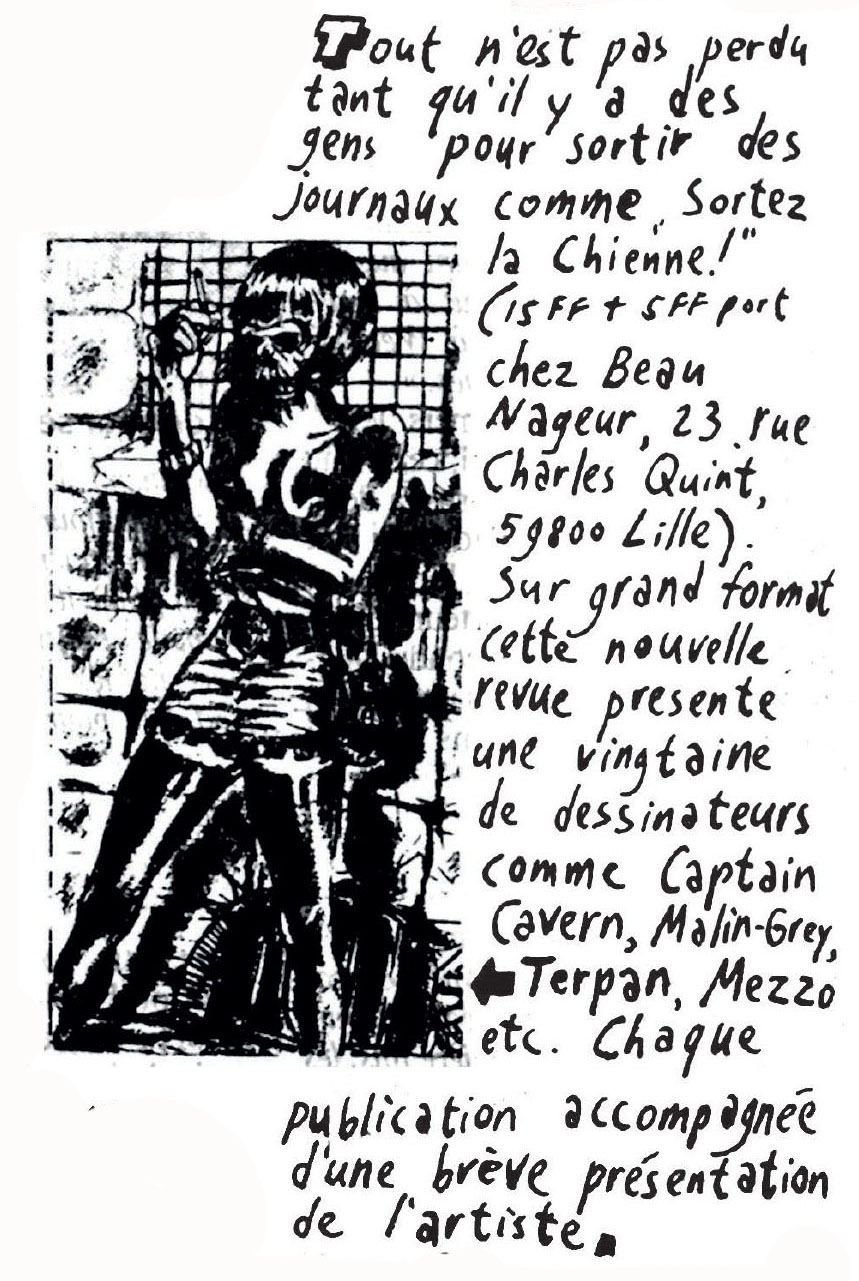 Tout n'est pas perdu
tant qu'il y a des
gens pour sortir des
journaux comme "Sortez
la Chienne!"
(15 FF + 5 FF port
chez Beau
Nageur, 23 rue
Charles Quint,
59800 Lille).
Sur grand format
cette nouvelle
revue presente
une vingtaine
de dessinateurs
comme Captain
Cavern, Malin-Grey,
Terpan, Mezzo
etc. Chaque
publication accompagnée
d'une brève présentation
de l'artiste.